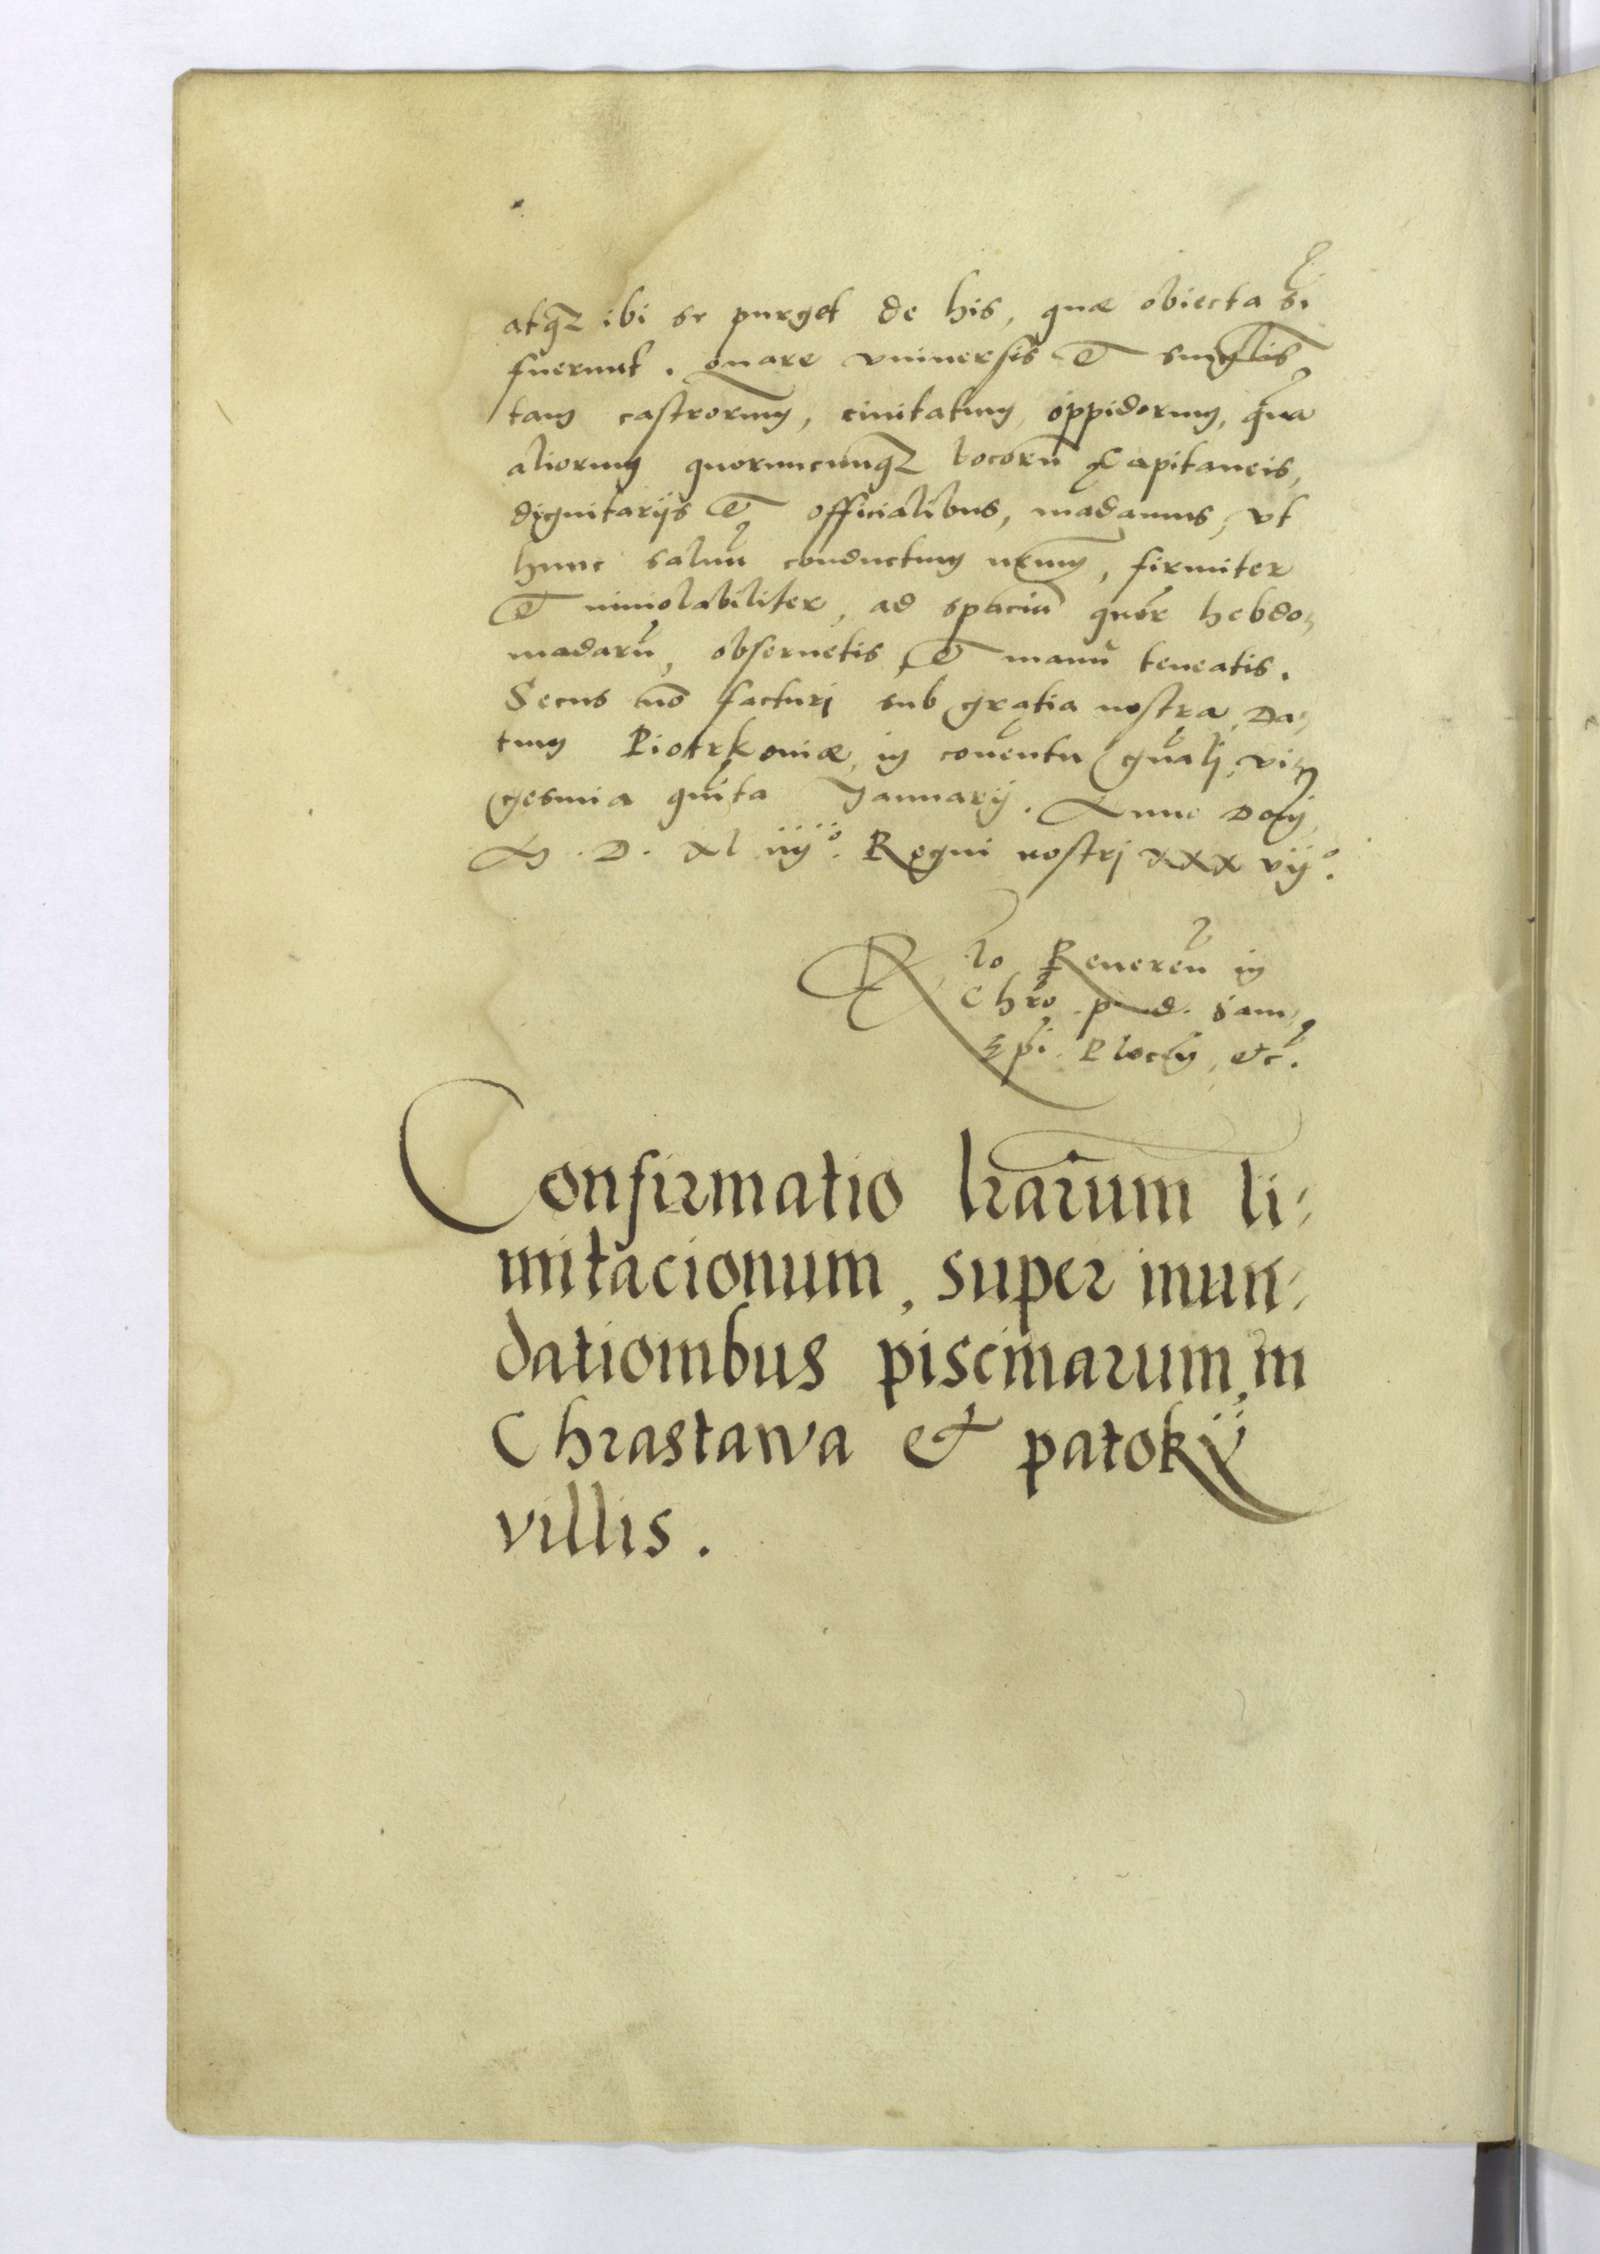 atq3 ibi se purget de his, quae obiecta si
fuerunt. Quare vniuersis et singlis
tam castrorum, ciuitatum, oppidorum, qua
aliorum quorumcunq3 locorũ Capitaneis,
dignitarijs et officialibus, mãdamus, vt
hunc saluũ conductum nr̃um, firmiter
et inuiolabiliter, ad spaciũ quor hebdo,
madarũ, obseruetis, et manũ teneatis.
Secus nõ facturi sub gratia nostra, Da,
tum Piotrkouiæ, in cõuentu gñali, vi,
gesima quita Januarij. Anno Dom̃
M. D. xl iiijº. Regni nostri xxx vijº.
R̃lo Reuereñ in
Chr̃o p. d. Sam,
Ep̃i Plocen̄, etc.
Confirmatio lr̃arum li,
mitacionum, super inun,
dationibus piscinarum, in
Chrastawa et patokÿ
villis.